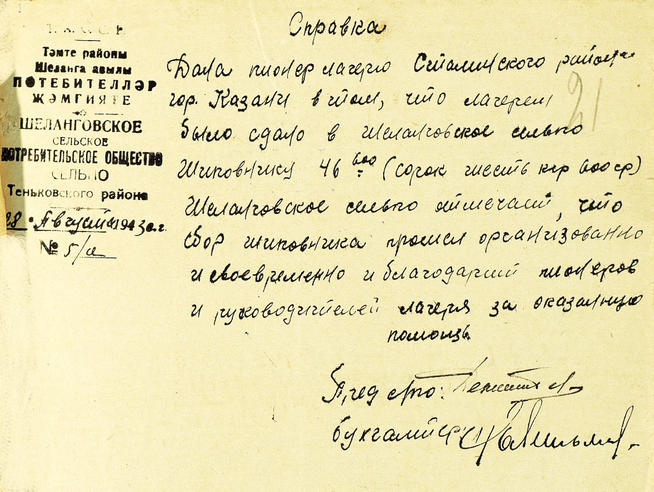 Справка
Т.А.С.С.Р.
Тәмте районы
Шеланга авылы
ПОТЕБИТЕЛЛӘР
ҖӘМГИЯТЕ
ШЕЛАНГОВСКОЕ
СЕЛЬСКОЕ
ПОТРЕБИТЕЛЬСКОЕ ОБЩЕСТВО
СЕЛЬПО
Теньковского района
28 Августа 1943 г.
№ 5/а
21
Дана пионер лагерю Сталинского района
гор. Казани в том, что лагерем
было сдало в Шеланговское сельпо
Шиповнику 46 600 (сорок шесть кгр 600 гр)
Шеланговское сельпо отмечает, что
сбор шиповника прошел организованно
и своевременно и благодарит пионеров
и руководителей лагеря за оказанную
помощь.
Пред. с/по:
бухгалтер